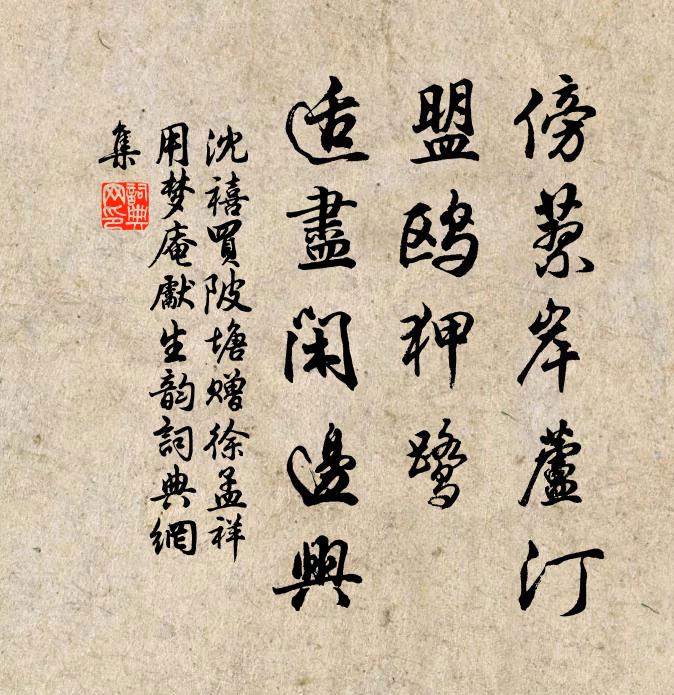 傍蓼岸蘆汀
盟鷗狎鷺
适盡閑邊興
沈禧買陂塘贈徐孟祥
用梦庵獻生韵詞典網
集
詞典網印